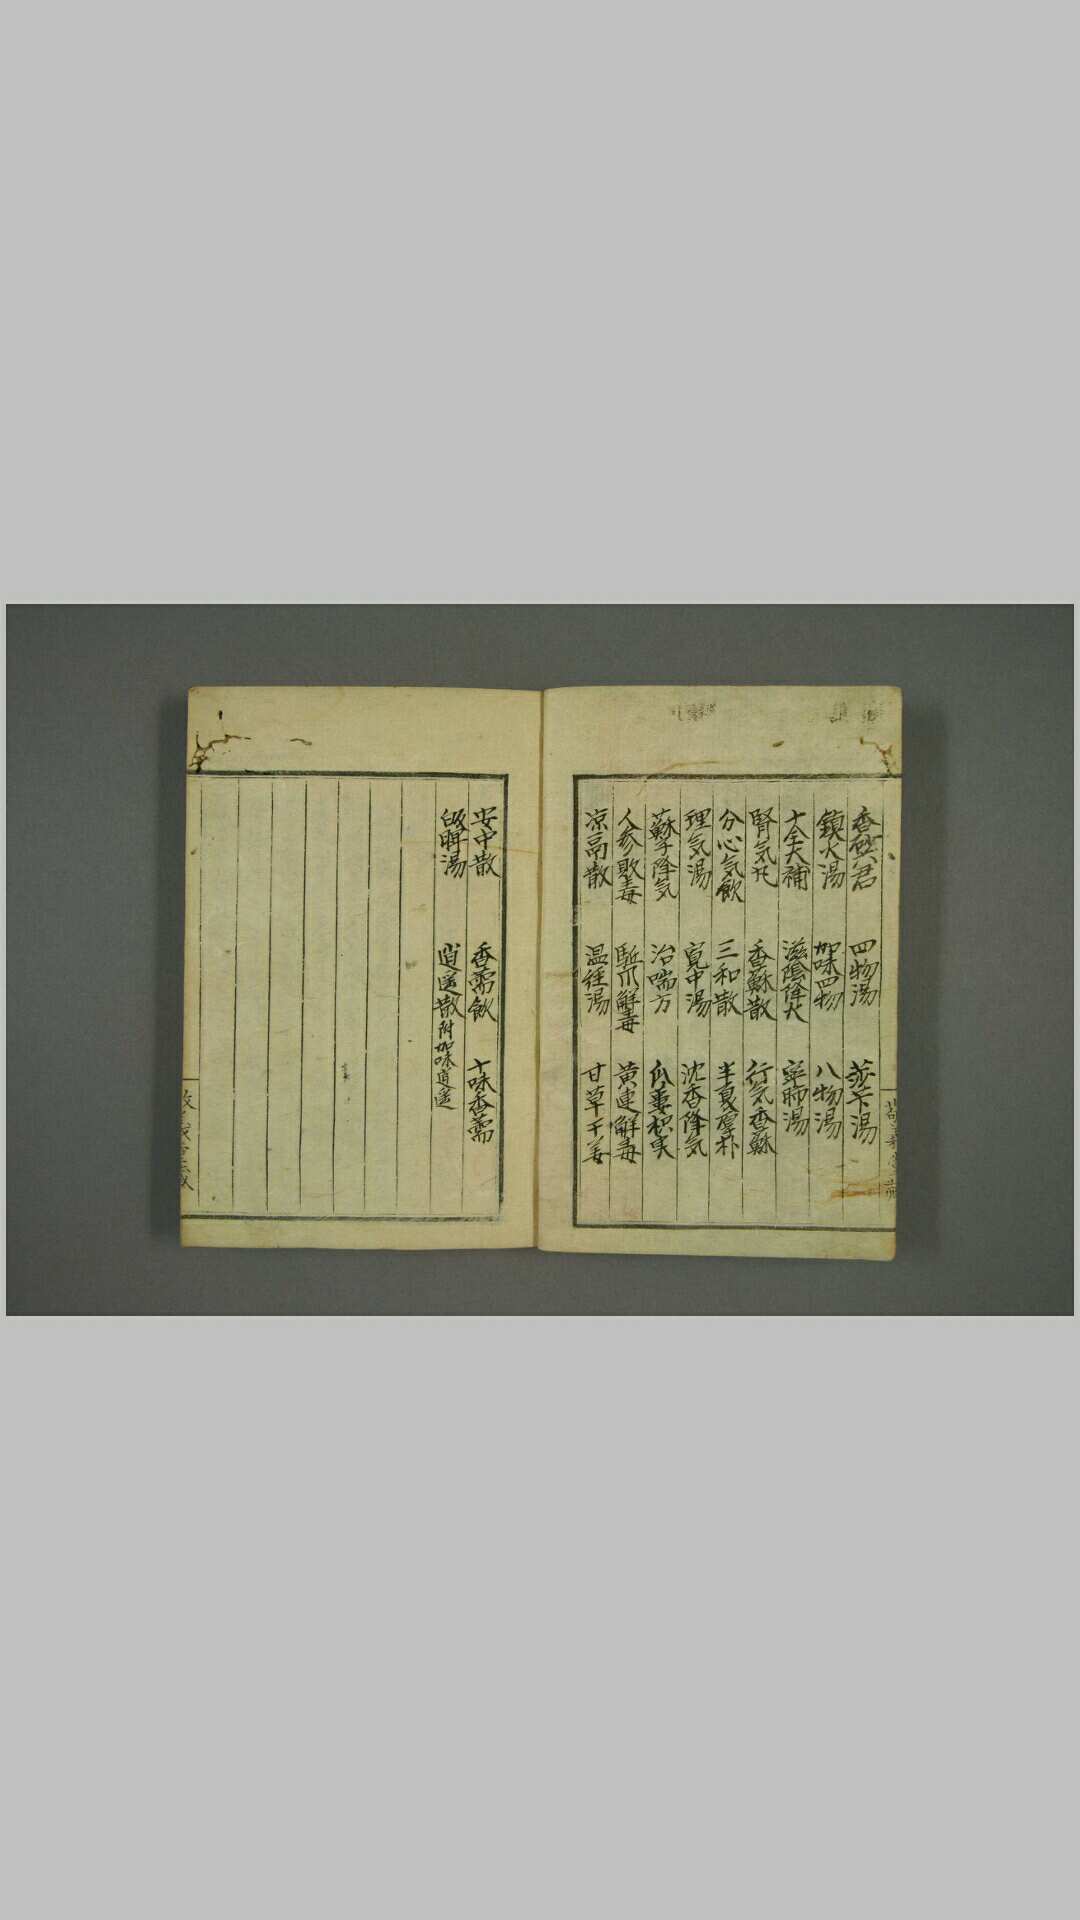 香砂六君 四物湯 芎下湯
鎮火湯 加味四物 八物湯
十全大補 滋陰降火 寧肺湯
腎気丸 香蘇散 行気香蘇
分心気飲 三和散 半夏厚朴
理気湯 寛中湯 沈香降気
蘇子降気 治喘方 瓜蔞枳実
人参敗毒 解毒 黄連解毒
凉膈散 温経湯 甘草干姜
安中散 香薷飲 十味香薷
皈脾湯 逍遥散 附加味逍遥